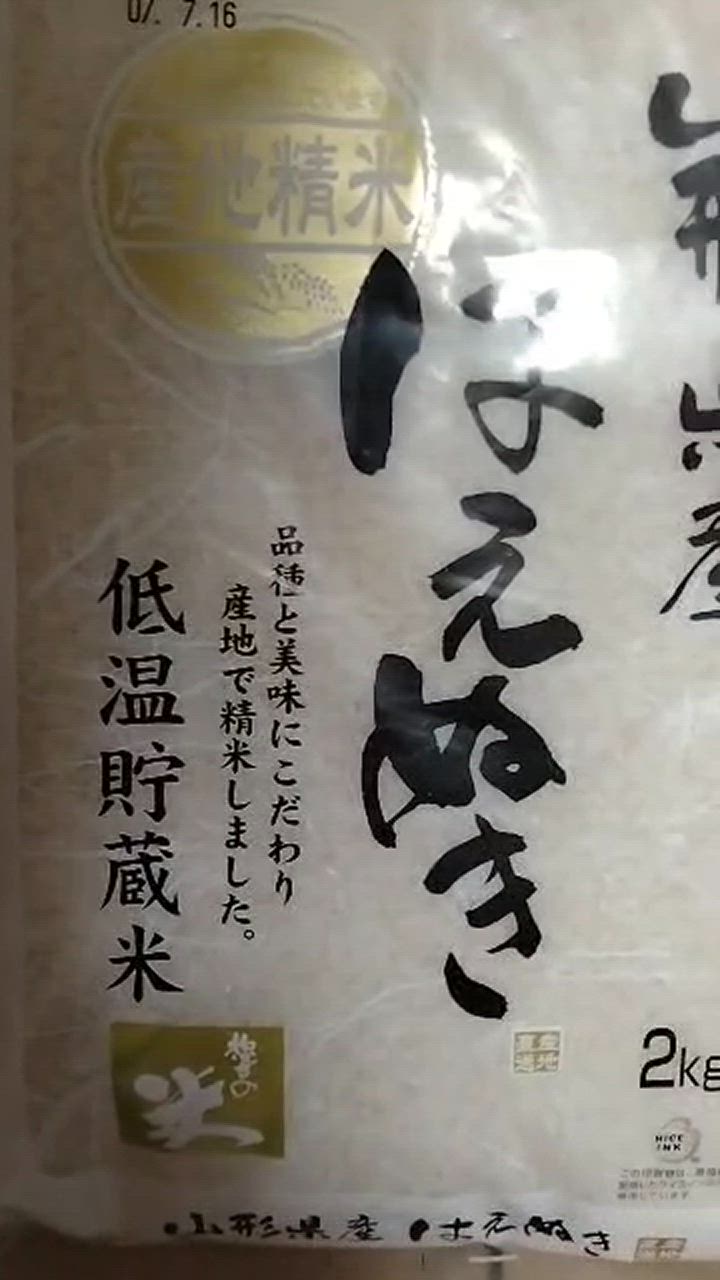 07. 7.16
産地精米
山形県産
はえぬき
品種と美味にこだわり
産地で精米しました。
低温貯蔵米
米
産地
直送
2kg
RICE
INK
山形県産 はえぬき